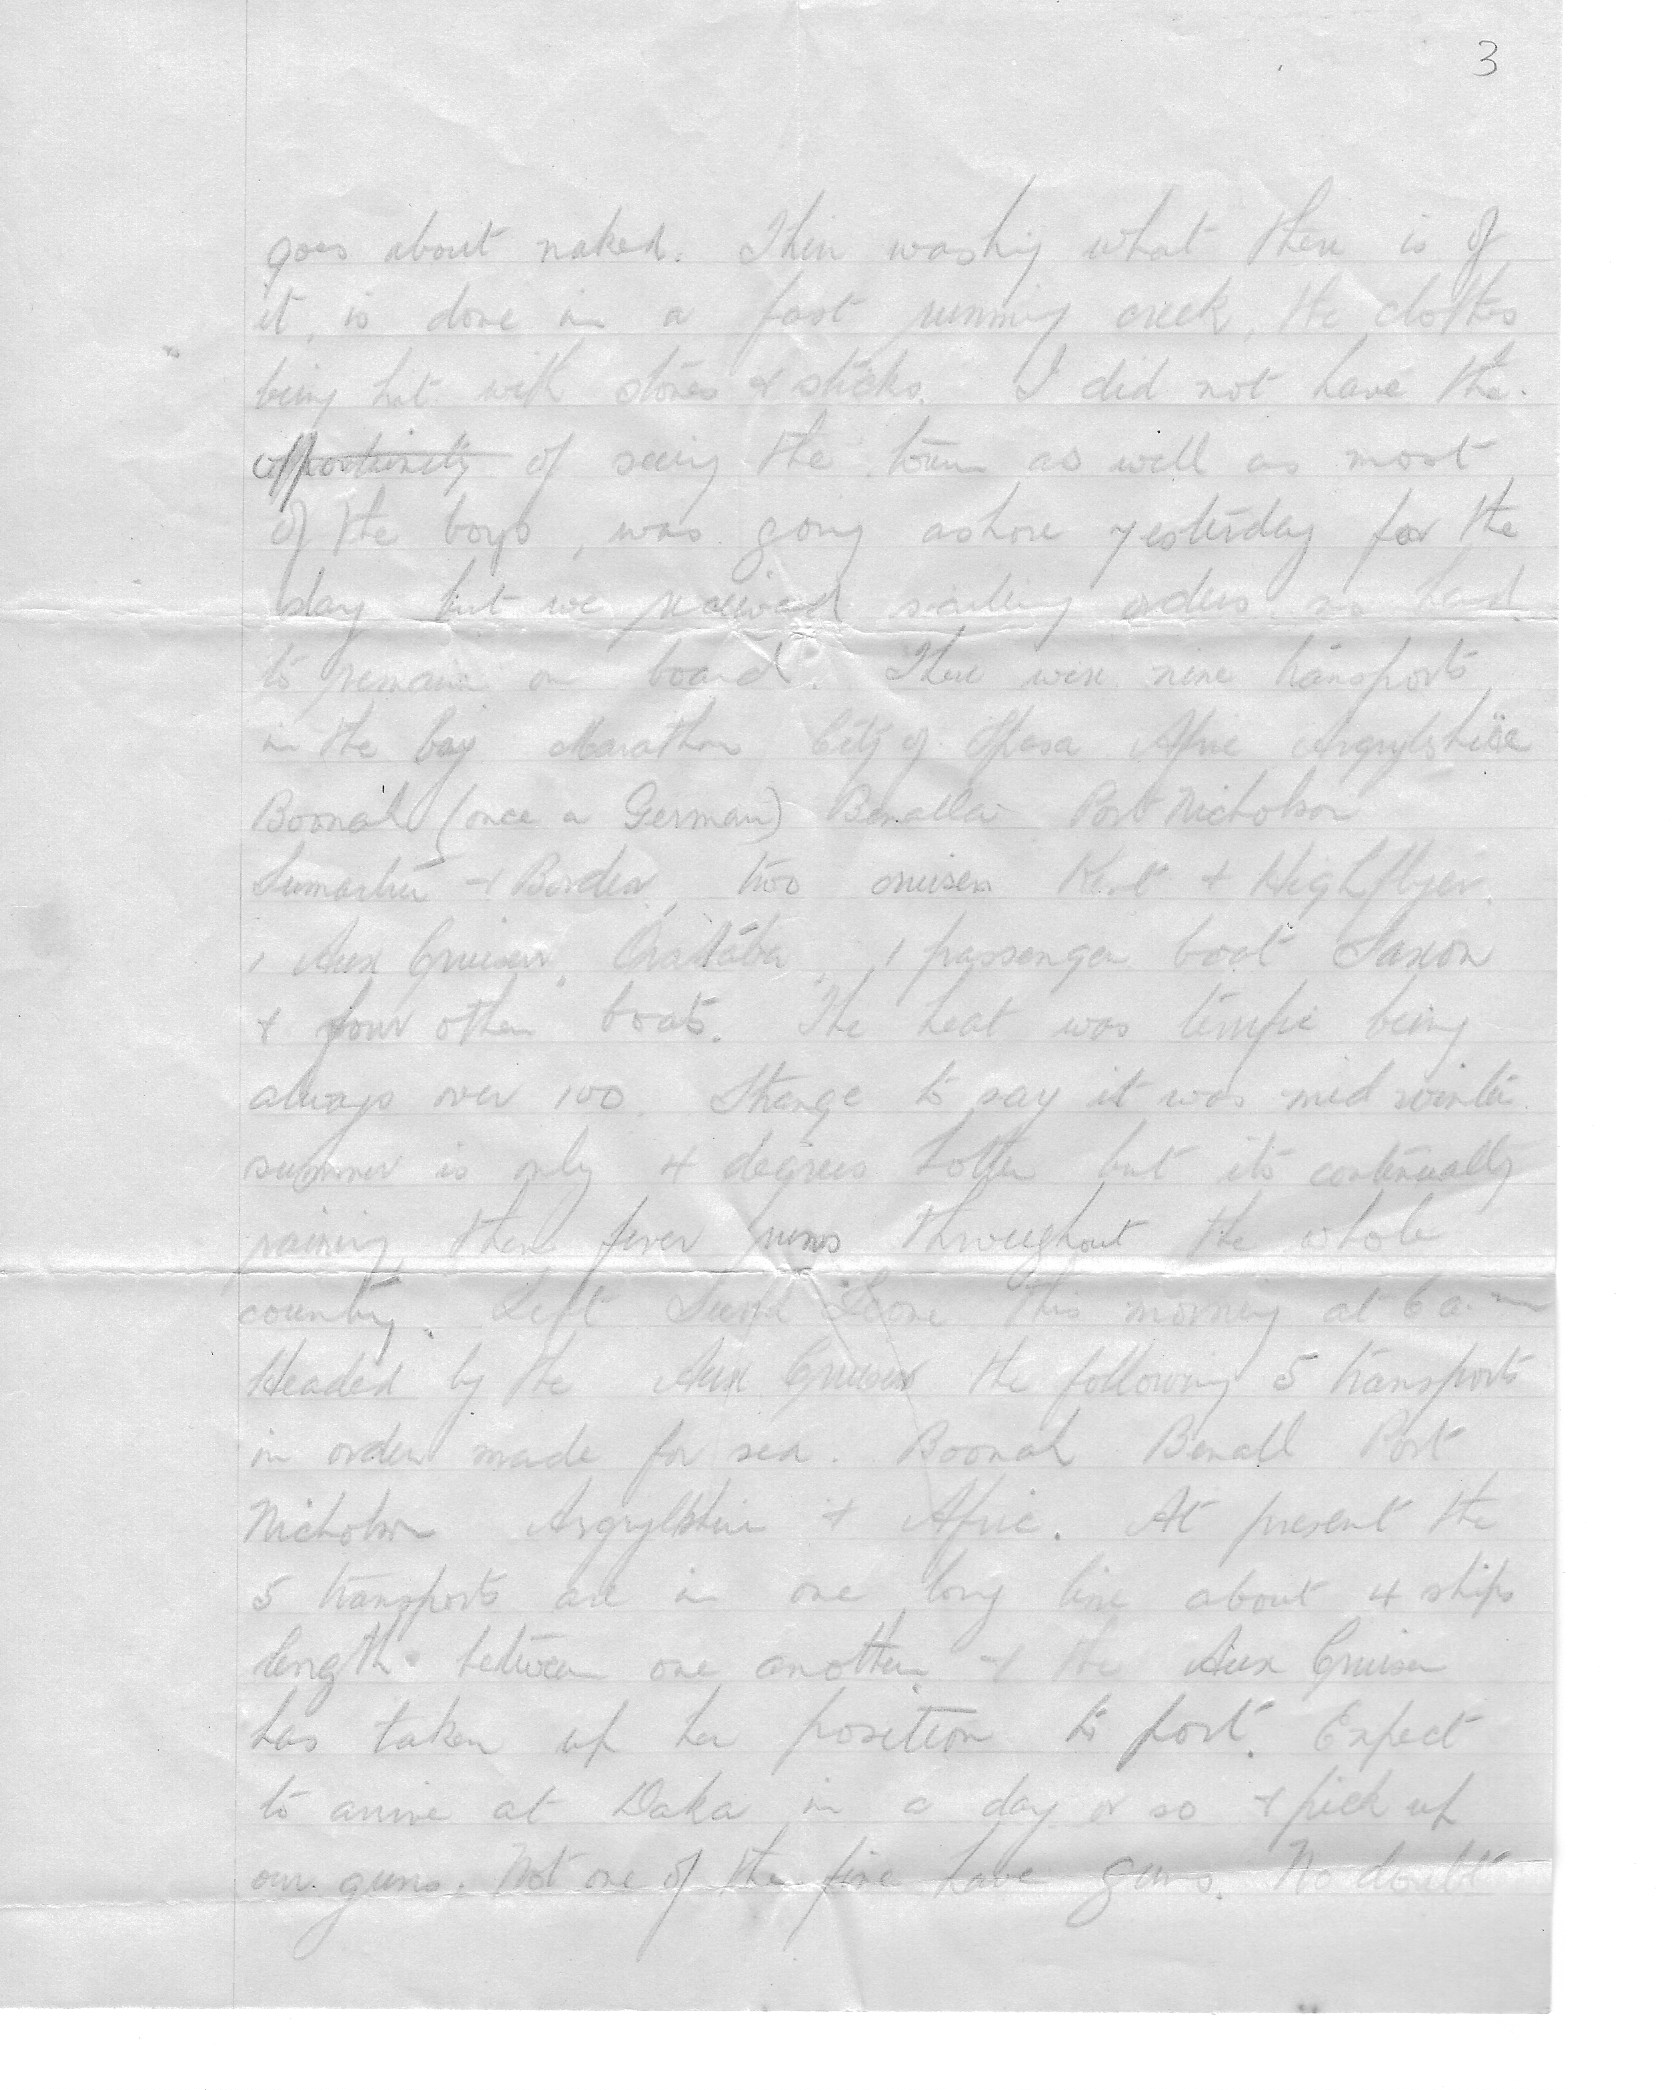 3
goes about naked. Their washing what there is of
it, is done in a fast running creek, the clothes
being hit with stones & sticks. I did not have the
opportunity of seeing the town as well as most
of the boys, was going ashore yesterday for the
day but we received sailing orders so had
to remain on board. There were nine transports
in the bay Marathon City of Afric Argyllshire
Boonah (once a German) Benalla Port Nicholson
& Border, two cruisers Kent & Highflyer.
1 Aux Cruiser, 1 passenger boat Saxon
& four other boats. The heat was terrific being
always over 100. Strange to say it was mid winter
summer is only 4 degrees hotter but its continually
raining then fever runs throughout the whole
country. Left Sierra Leone this morning at 6 a.m
Headed by the Aux Cruiser the following 5 transports
in order made for sea. Boonah Benall Port
Nicholson Argyllshire & Afric. At present the
5 transports are in one long line about 4 ships
length between one another & the Aux Cruiser
has taken up her position to port. Expect
to arrive at Daka in a day or so & pick up
our guns. Not one of the five have guns. No doubt